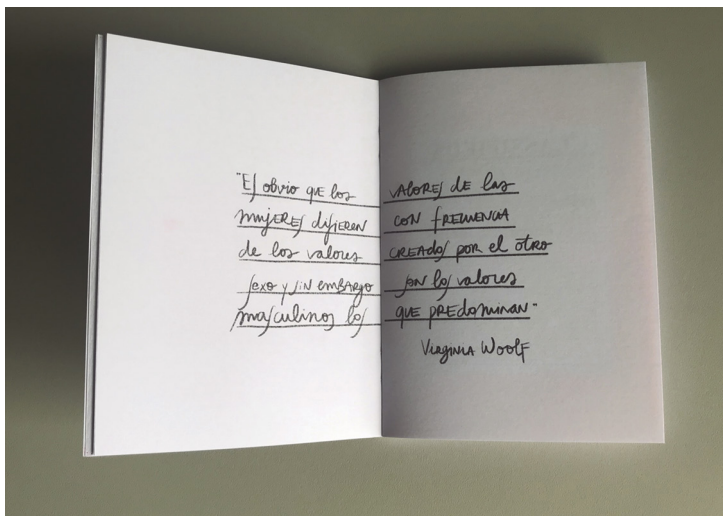 "Es obvio que los valores de las
mujeres difieren con frecuencia
de los valores creados por el otro
sexo y sin embargo son los valores
masculinos los que predominan"
Virginia Woolf